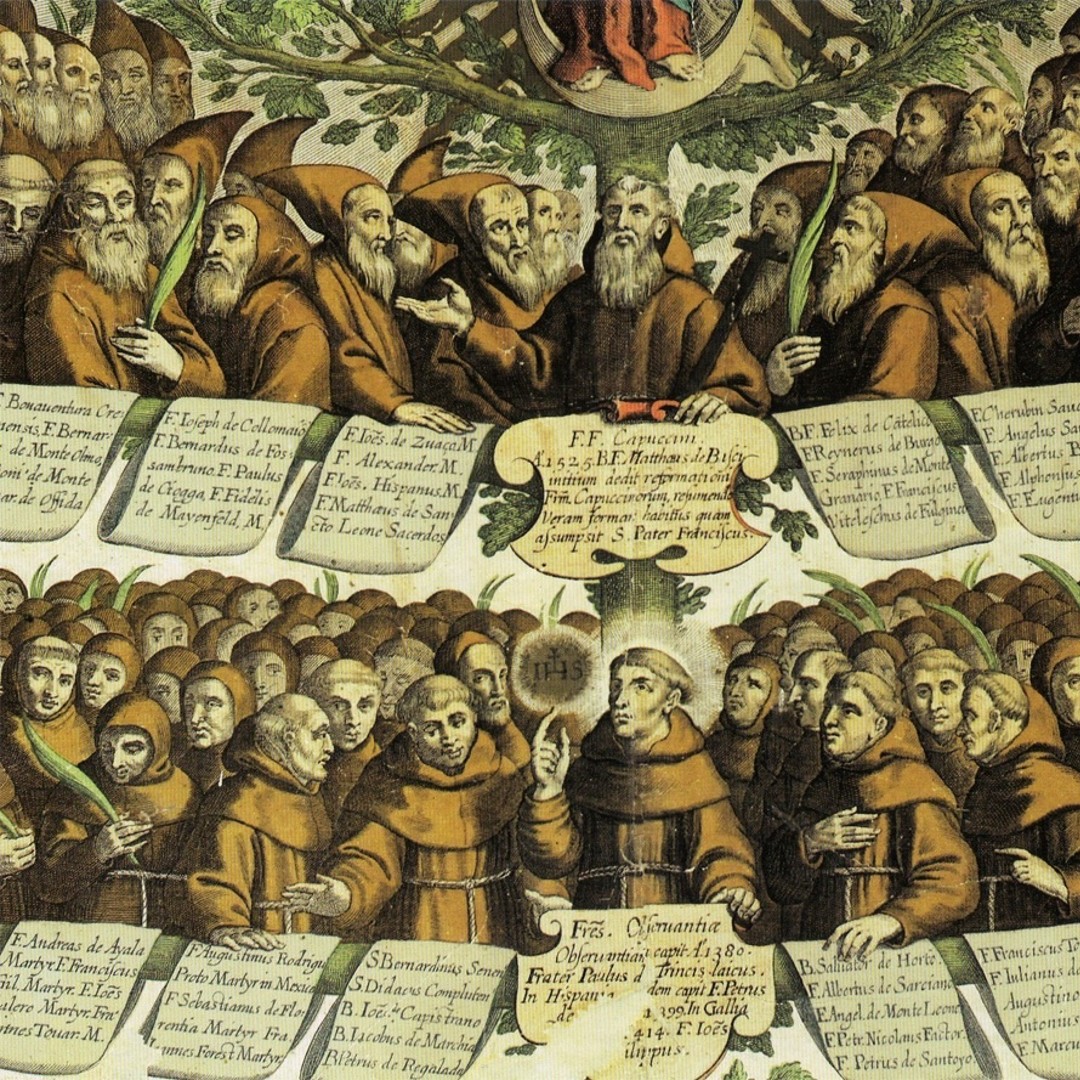 F. Bonauentura Cre
nensis, F. Bernar
de Monte Olmo,
oni de Monte
ar de Offida
F. Ioseph de Collomaio
F. Bernardus de Fos
sambruno, F. Paulus
de Chogga, F. Fidelis
de Mayenfeld, M.
F. Ioēs. de Zuaço M.
F. Alexander. M.
F. Ioēs. Hispanus M.
F. Matthæus de San
cto Leone Sacerdos
F. F. Capuccini.
A. 1525. B. F. Matthæus de Basci
initium dedit reformationi
Frm̄. Capuccinorum, resumendo
veram formam habitus quam
assumpsit S. Pater Franciscus.
B F. Felix de Cātalic
F. Reynerus de Burgo
F. Seraphinus de Monte
Granario, F. Franciscus
Viteleschus de Fulgine
F. Cherubin
F. Angelus San
F. Albertus B
F. Alphonsus
F. Eugeni
IHS
F. Andreas de Ayala
Martyr F. Franciscus
Gil, Martyr. F. Ioēs
alero Martyr. Fra
Touar. M.
F. Augustinus Rodrigu
Proto Martyr in Mexico
F. Sebastianus de Flo
rentia Martyr Fra.
Ioannes Forest Martyr
S. Bernardinus Senen
S. Didacus Compluten
B. Ioēs. Capistrano
B. Iacobus de Marchia
B. Petrus de Regalada
Frēs. Obseruantiæ
Obseruantia cæpit A. 1380.
Frater Paulus d Trincis laicus.
In Hispania dem cæpit F. Petrus
de 1.399. In Gallia
.414. F. Ioēs
ilippus.
B. Saluator de Horte
F. Albertus de Sarciano
F. Angel. de Monte Leone
F. Petr. Nicolaus Factor.
F. Petrus de Santoyo
F. Franciscus To
F. Iulianus de
Augustino
Antonius
F. Marcu